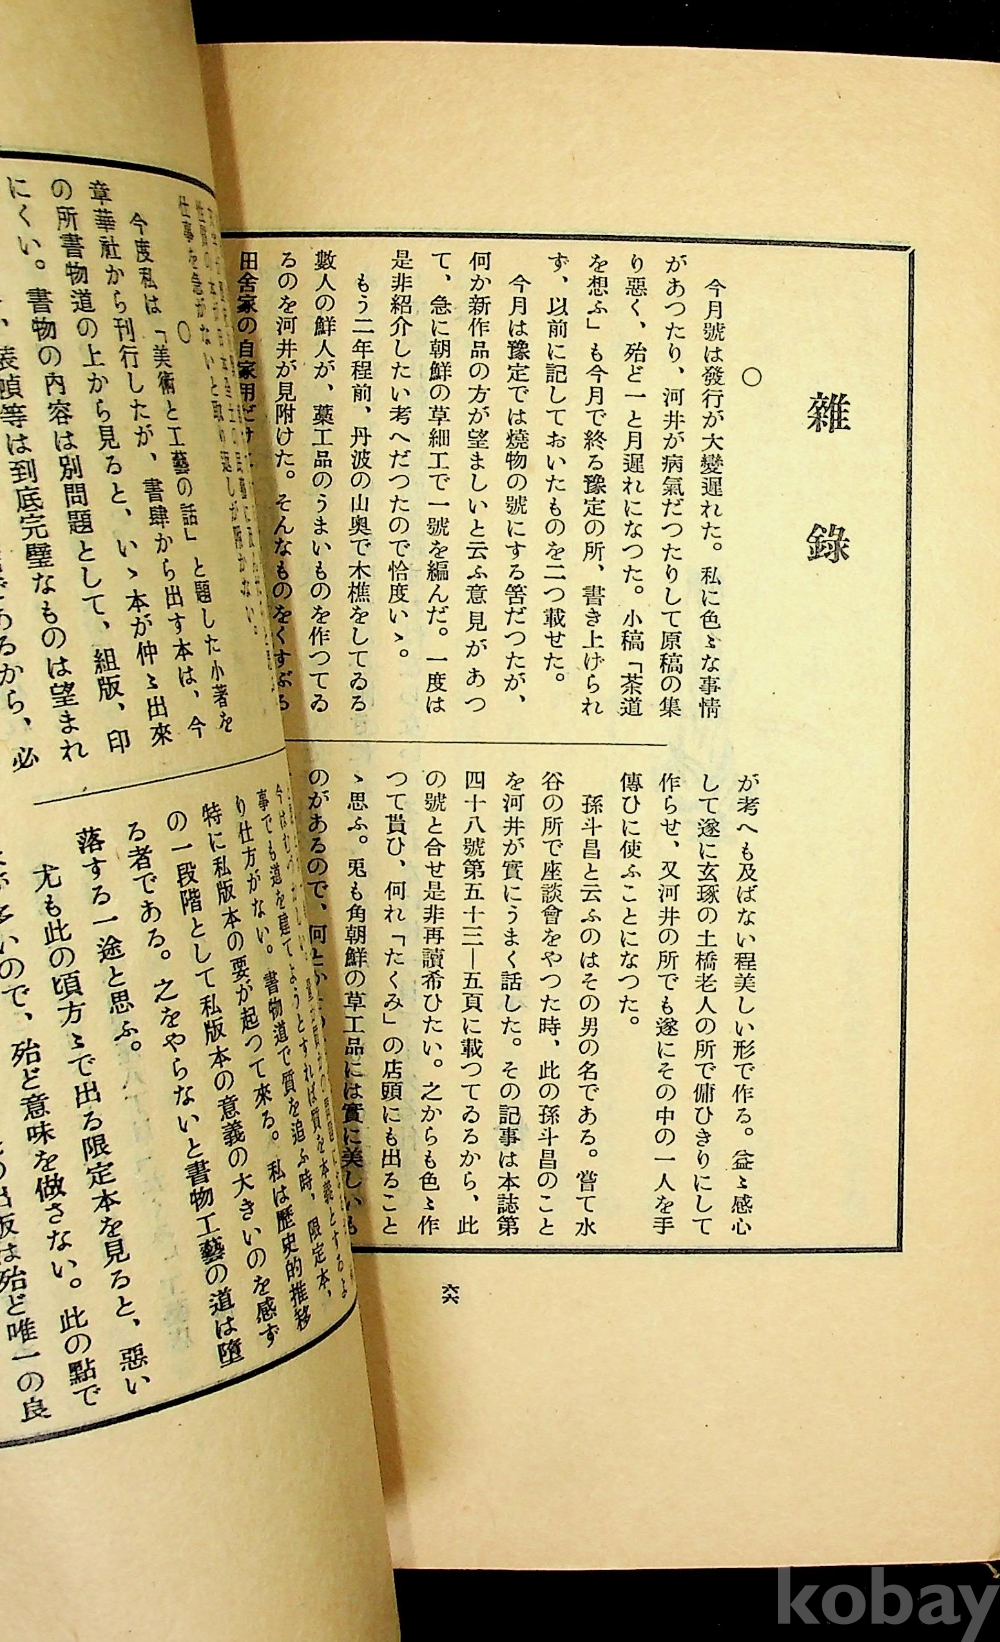 雜錄
○
今月號は發行が大變遲れた。私に色〻な事情
があつたり、河井が病氣だつたりして原稿の集
り惡く、殆ど一と月遲れになつた。小稿「茶道
を想ふ」も今月で終る豫定の所、書き上げられ
ず、以前に記しておいたものを二つ載せた。
今月は豫定では燒物の號にする筈だつたが、
何か新作品の方が望ましいと云ふ意見があつ
て、急に朝鮮の草細工で一號を編んだ。一度は
是非紹介したい考へだつたので恰度いゝ。
もう二年程前、丹波の山奧で木樵をしてゐる
數人の鮮人が、藁工品のうまいものを作つてゐ
るのを河井が見附けた。そんなものをくすぶる
田舍家の自家用だけ
が考へも及ばない程美しい形で作る。益〻感心
して遂に玄琢の土橋老人の所で傭ひきりにして
作らせ、又河井の所でも遂にその中の一人を手
傳ひに使ふことになつた。
孫斗昌と云ふのはその男の名である。嘗て水
谷の所で座談會をやつた時、此の孫斗昌のこと
を河井が實にうまく話した。その記事は本誌第
四十八號第五十三—五頁に載つてゐるから、此
の號と合せ是非再讀希ひたい。之からも色〻作
つて貰ひ、何れ「たくみ」の店頭にも出ること
ゝ思ふ。兎も角朝鮮の草工品には實に美しいも
のがあるので、何とか
六六
仕事を急がないと取り返しが附かない。
○
今度私は「美術と工藝の話」と題した小著を
章華社から刊行したが、書肆から出す本は、今
の所書物道の上から見ると、いゝ本が仲〻出來
にくい。書物の內容は別問題として、組版、印
裝幀等は到底完璧なものは望まれ
であるから、必
事でも道を建てようとすれば質を本義とするよ
り仕方がない。書物道で質を追ふ時、限定本、
特に私版本の要が起つて來る。私は歷史的推移
の一段階として私版本の意義の大きいのを感ず
る者である。之をやらないと書物工藝の道は墮
落する一途と思ふ。
尤も此の頃方〻で出る限定本を見ると、惡い
いので、殆ど意味を做さない。此の點で
出版は殆ど唯一の良
kobay